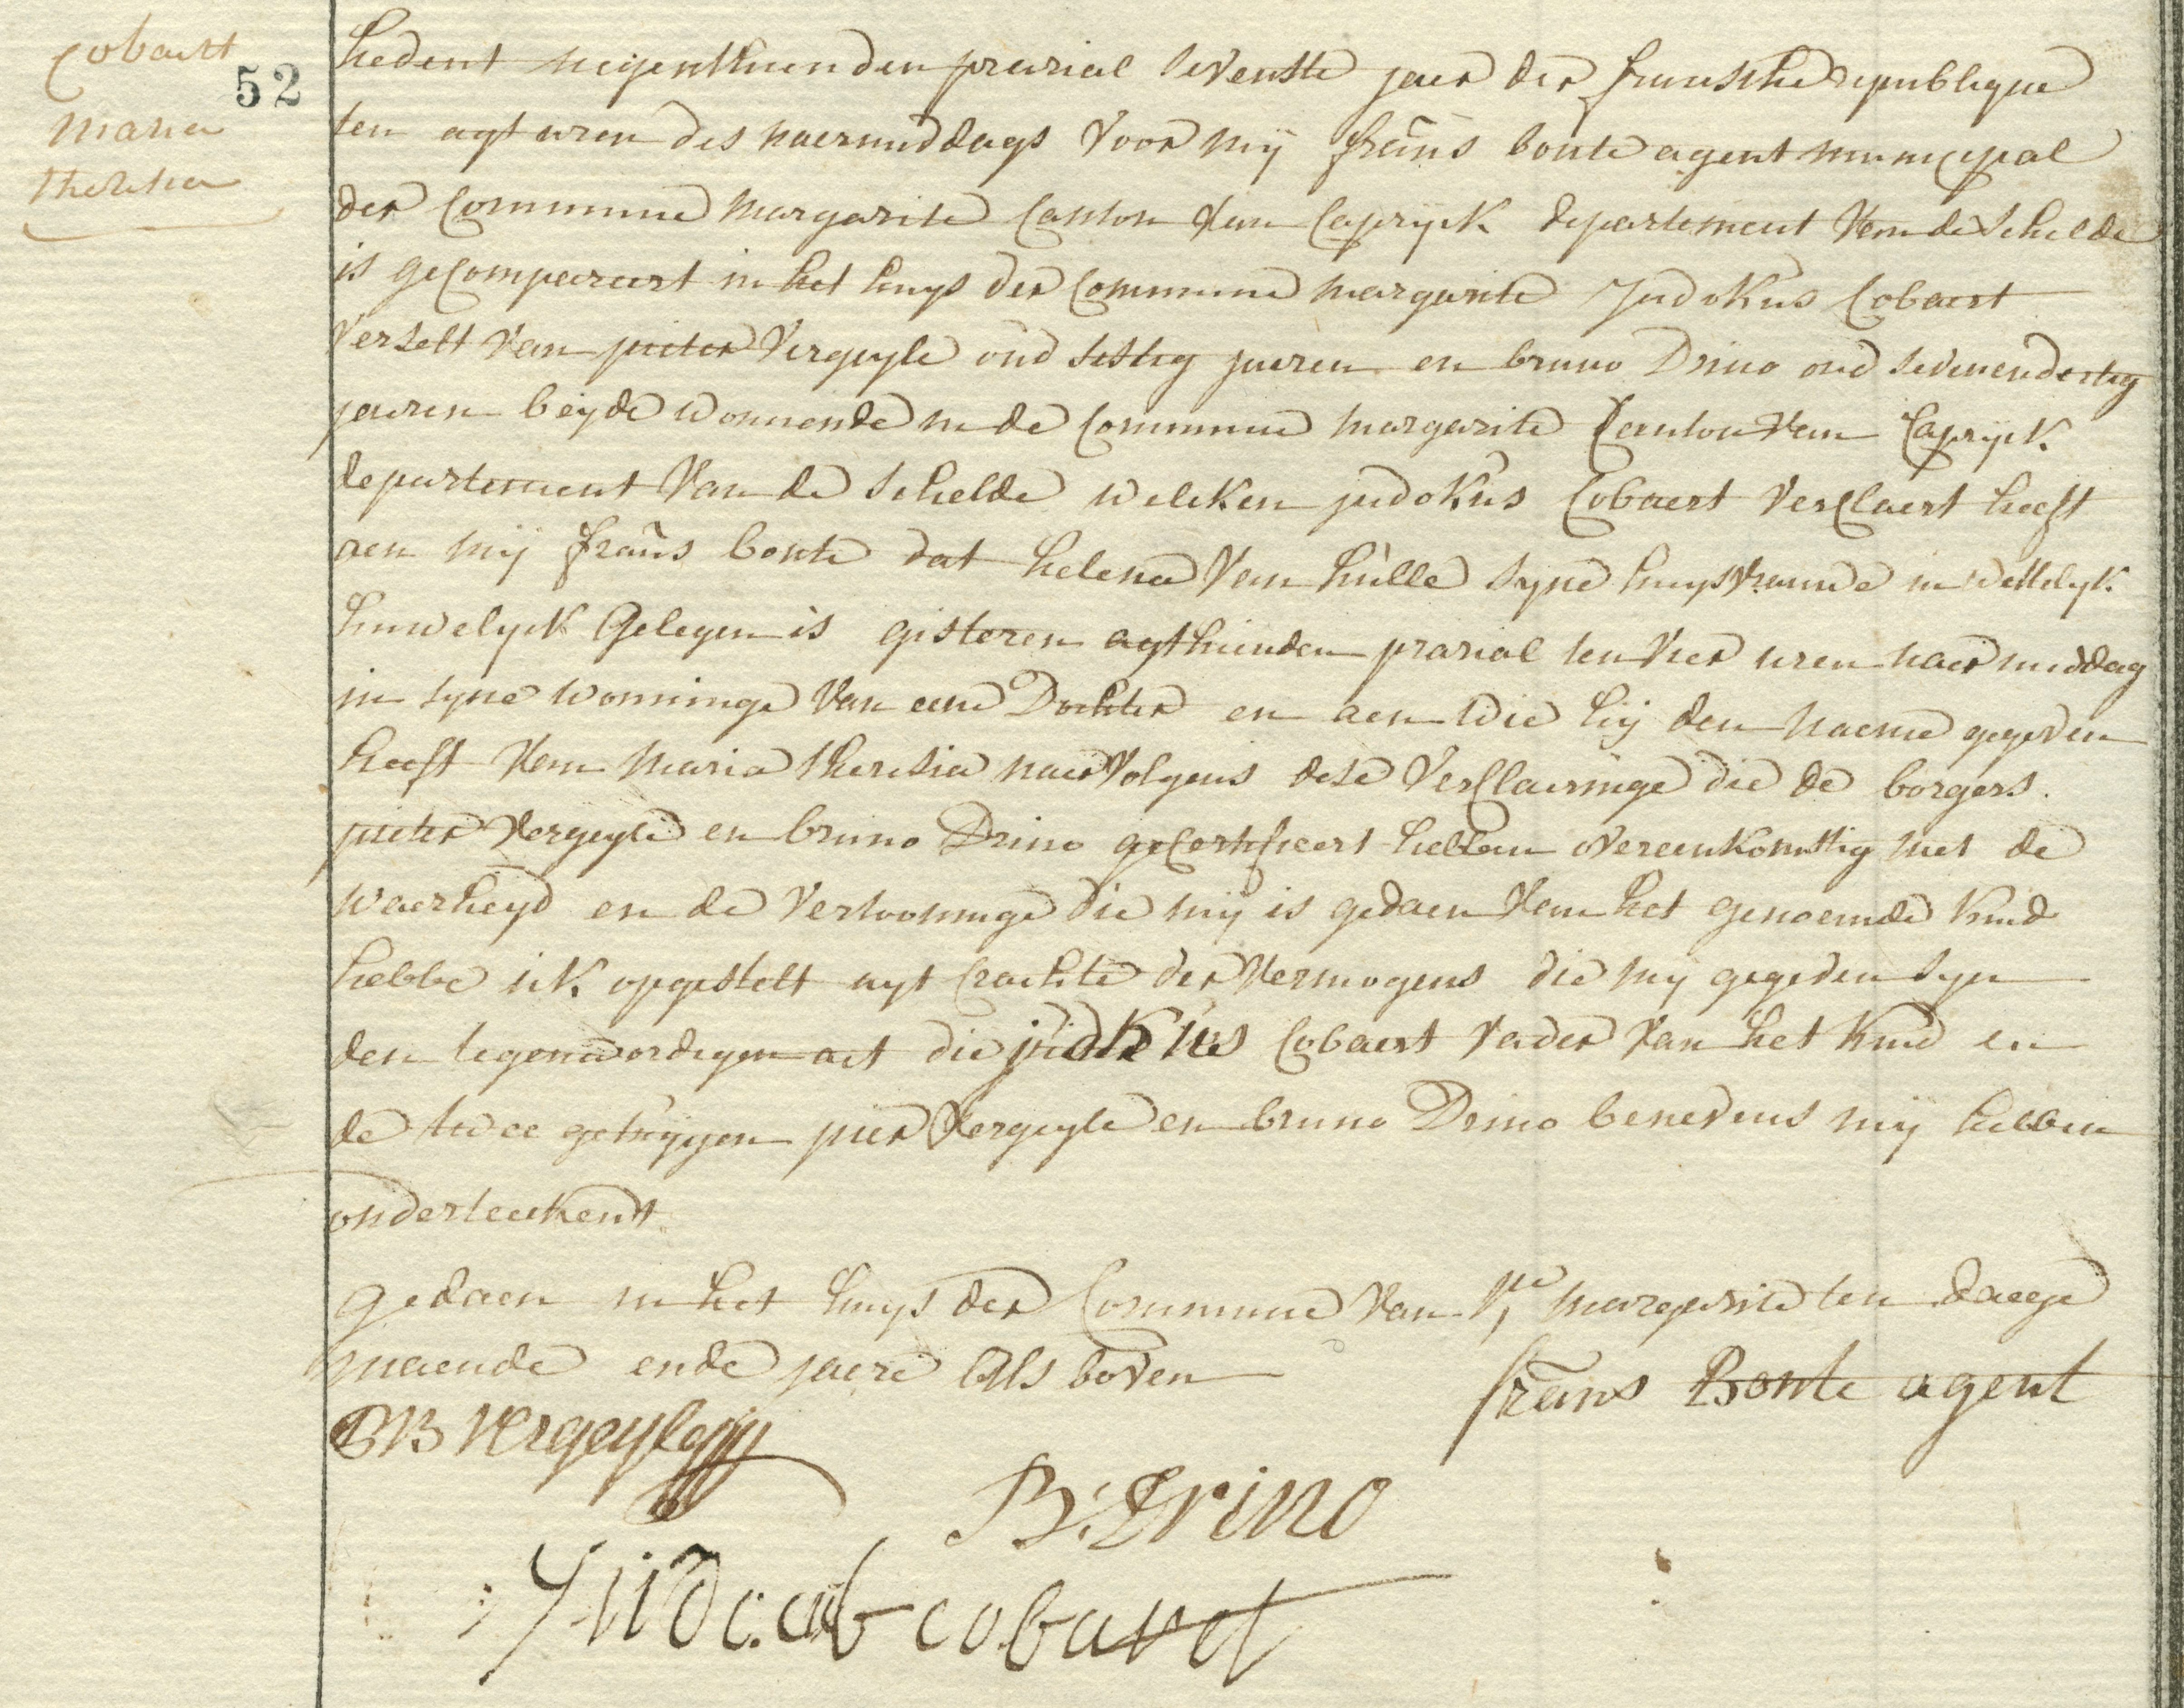 Cobaert
52
maria
theresia
hedent neigenthienden prairial sevenste jaer der fransche republique
ten agt uren des naermiddags voor mij frans bonte agent municipal
der Commune margarite Canton van Capryck departement van de schelde
is geCompareert in het huys der Commune margarite Judokus Cobaert
verselt van pieter vergeyle oud sestig jaeren en bruno Drino oud sevenendertig
jaeren beyde wonnende in de Commune margarite Canton van Capryck
departement van de schelde welcken judokus Cobaert verClaert heeft
aen mij frans bonte dat helena van hulle syne huysvrauwe in wettelyk
huwelyck Gelegen is gisteren agthienden prarial ten vier uren naer middag
in syne wonninge van eene Dochter en aen wie hij den naeme gegeven
heeft van maria theresia naervolgens dese verClaeringe die de borgers
pieter vergeyle en bruno Drino geCertificeert hebben overeenkomstig met de
waerheyd en de vertooninge die mij is gedaen van het genoemde kind
hebbe ick opgestelt uyt Crachte der vermogens die mij gegeven syn
den tegenwordigen act die judokus Cobaert vader van het kind en
de twee getuygen pier vergeyle en bruno Drino benevens mij hebben
onderteekent
gedaen in het huys der Commune van Ste margarite ten daege
maende ende jaere Als boven
frans Bonte agent
vergeyle
B: Drino
cobaert